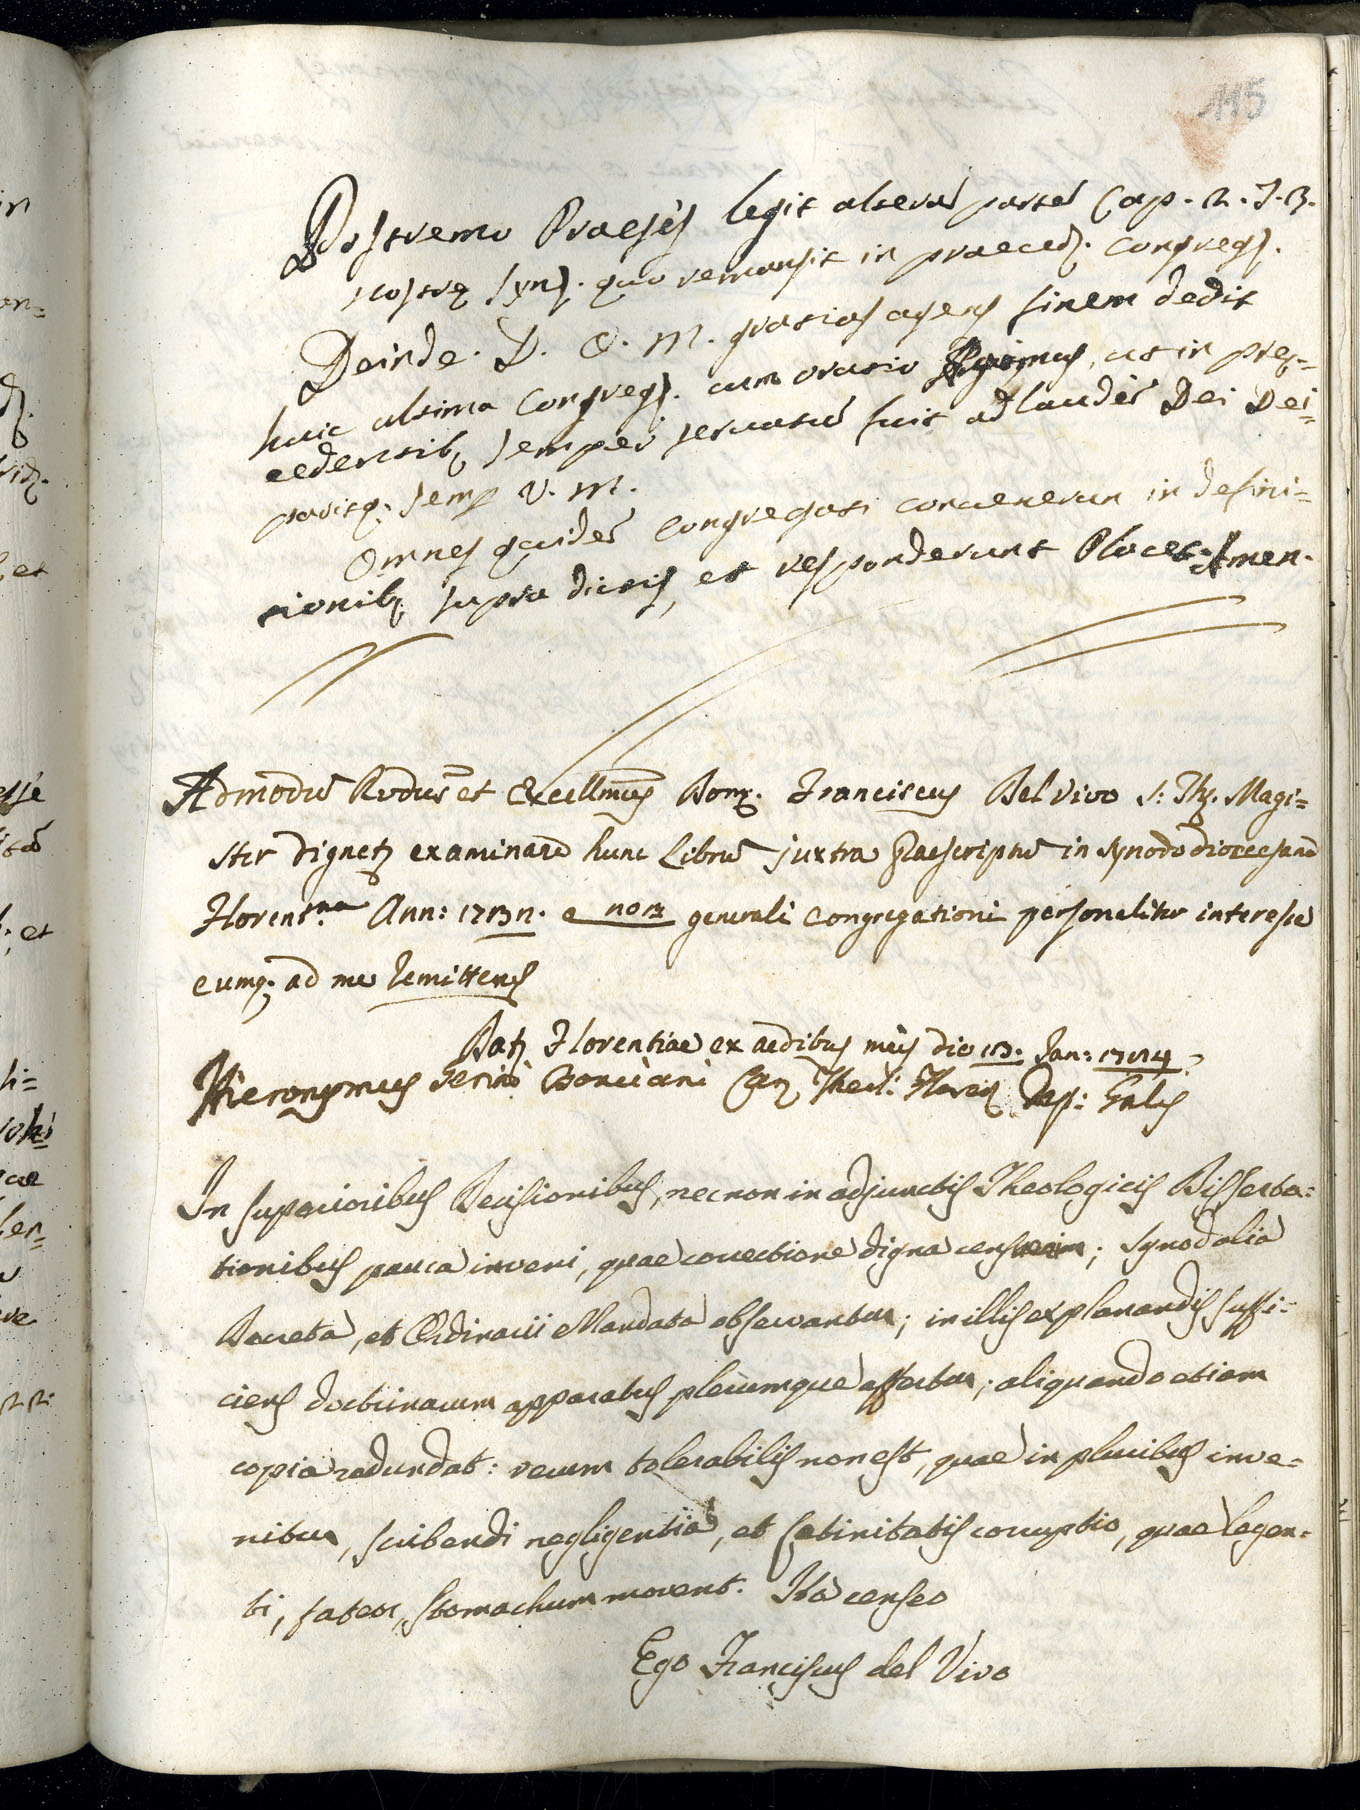 115
Postremo Praeses legit alterã partẽ Cap. 2. J. B.
nostrę Synḍ. quo remansit in praeced. Congreg.
Deinde D. O. M. gratias agens finem dedit
huic ultima Congreg. cum oratio Agimus, ut in pręcedentib,
cedentib, semper servatũ fuit ad laudẽ Dei Dei=
parisq; semp V. M.
Omnes quidẽ congregati convenerun in defini=
tionib, supra dictis, et responderunt Placet. Amen.
Admodũ Rvdus et Excellmus Domꝰ. Franciscus Del Vivo S: Th. Magi=
ster dignetꝫ examinare hunc Librũ juxta Praescriptũ in synodo dioecesana
Florentna Ann: 1732. e nom generali Congregationi personaliter interesse
eumq; ad me remittens
Datꝫ Florentiae ex aedibus meis die 13. Jan: 1714
Hieronymus Gerini Bonciani Can Theol: Floren Dep: Gnlis
In superioribus Decisionibus, necnon in adjunctis Theologicis Disserta=
tionibus pauca inveni, quae correctione digna censuerim; Synodalia
Decreta, et Ordinarii Mandata observantur; in illis explanandis suffi=
ciens doctrinarum apparatus plerumque affertur; aliquando etiam
copia redundat: verum tolerabilis non est, quae in pluribus inve=
nitur, scribendi negligentia, et Latinitatis corruptio, quae legen=
ti, fateor, stomachum movent. Ita censeo
Ego Franciscus del Vivo